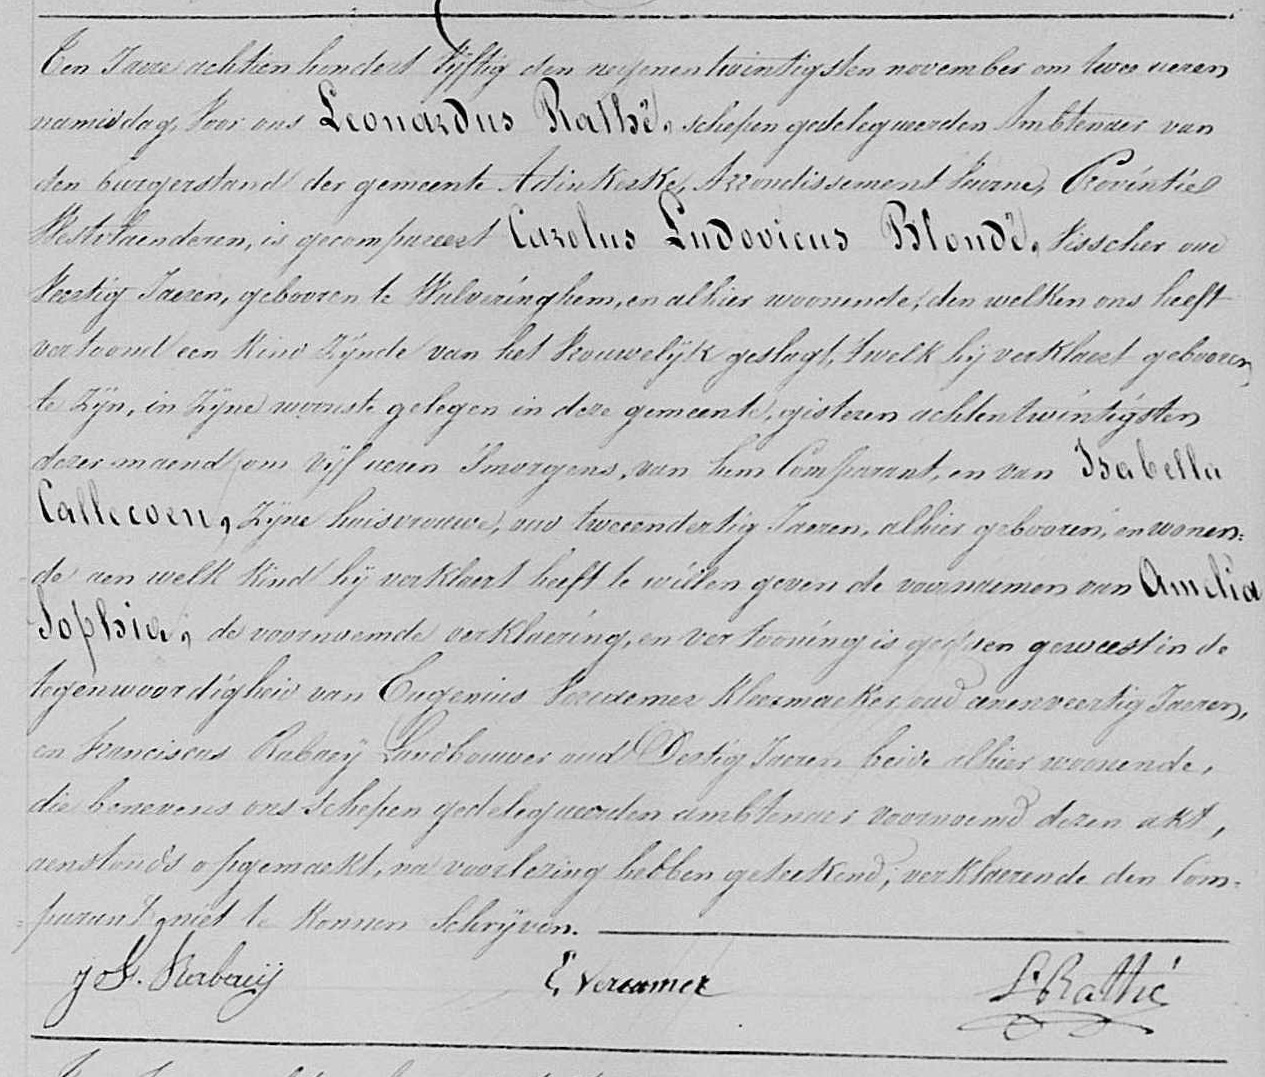 Ten Jaere achtien hondert vyftig den negenentwintigsten november om twee ueren
namiddag, voor ons Leonardus Rathé, schepen gedelegueerden Ambtenaer van
den burgerstand der gemeente Adinkerke, Arrondissement Veurne, Provintie
Westvlaenderen, is gecompareert Carolus Ludovicus Blondé, visscher oud
veertig Jaeren, gebooren te Wulveringhem, en alhier woonende, den welken ons heeft
vertoond een kind zijnde van het vrouwelijk geslagt, 't welk hij verklaert gebooren
te zijn, in zijne woonste gelegen in deze gemeente, gisteren achtentwintigsten
dezer maend om vijf ueren 's morgens, van hem Comparant, en van Isabella
Callecoen, zijne huisvrouwe, oud tweeendertig Jaeren, alhier gebooren, en wonen=
de aen welk kind hij verklaert heeft te willen geven de voornaemen van Amelia
Sophia, de voornoemde verklaering, en vertooning is gedaen geweest in de
tegenwoordigheid van Eugenius Vereemer kleermaeker, oud eenenveertig Jaeren,
en Franciscus Rabaey Landbouwer oud Dertig Jaeren beide alhier woonende,
die benevens ons schepen gedelegueerden ambtenaer voornoemd dezen akt,
aenstonds opgemaekt, na voorlezing hebben geteekend, verklaerende den Com=
=parant, niet te konnen schrijven.
F. Rabaeij E Vereemer L. Rathé